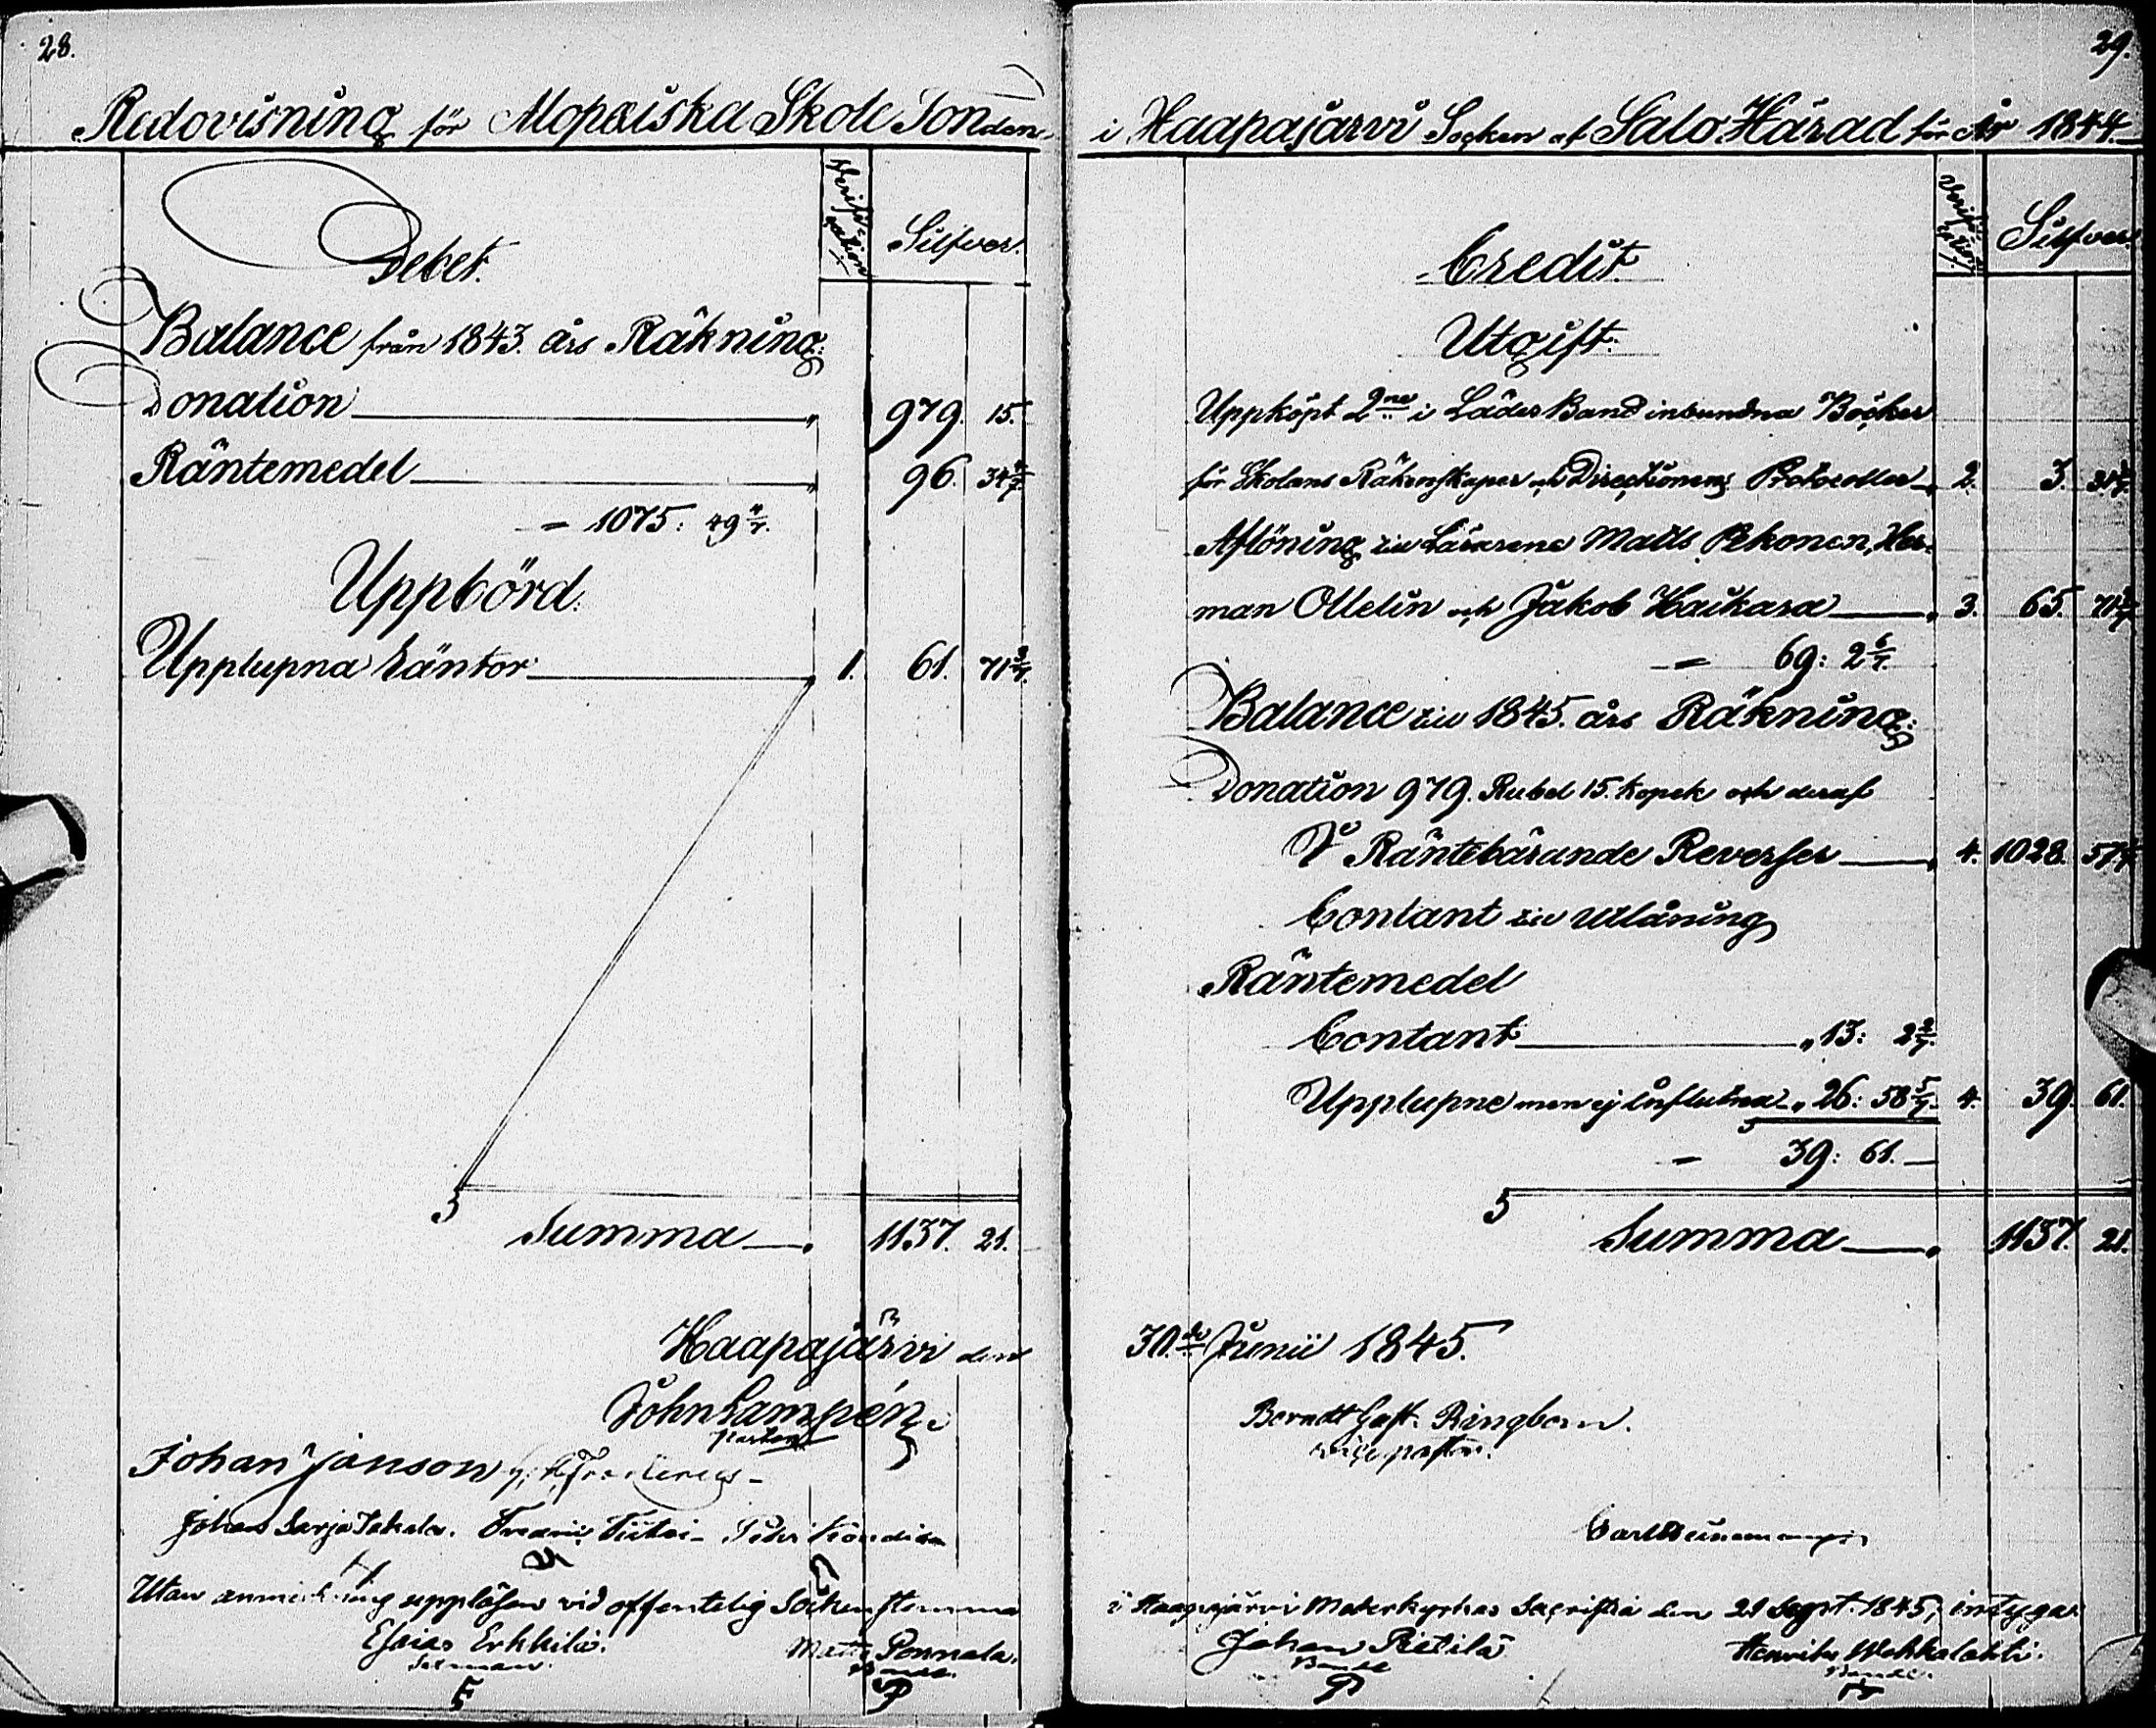 28.
Redovisning för Mopæiska Skole Fonden
Debet.
Verifi-
cation
Silfver.
Balance från 1843. års Räkning:
Donation 979. 15.
Räntemedel 96. 34 4/7.
1075: 49 4/7.
Uppbörd.
Upplupna Räntor 1. 61. 71 3/7.
Summa 1137. 21.
Haapajärvi den
John Lampén
Pastor
Johan Janson
Johan Sarja Jakala. Fredric Tiitoi Petter
Utan anmärkning uppläsen vid offentelig Sockenstemma
Esaias Erkkilä. Matts Ponnala.
29.
i Haapajärvi Socken af Salo Härad för År 1844.
Credit.
Verifi-
cation.
Silfver.
Utgift.
Uppköpt 2ne i Läder Band inbundna Böcker
för Skolans Räkenskaper och Directionens Protocoller 2. 3. 31 3/7
Aflöning till Lärarene Matts Pekonen, Her-
man Ollelin och Jakob Haikara 3. 65. 71 3/7
69: 2 6/7.
Balance till 1845. års Räkning:
Donation 979. Rubel 15. kopek och deraf
I Räntebärande Reverser 4. 1028. 57 1/7
Contant till utlåning
Räntemedel
Contant 13: 2 2/7.
Upplupne men ej influtna 26: 58 5/7. 4. 39. 61.
39: 61.
Summa 1137. 21.
30de Junii 1845.
Berndt Gust. Ringbom.
Vice pastor.
i Haapajärvi Moderkyrkas Sacristia den 21 Sept. 1845, intygar
Johan Pietilä Henrik Wehkalahti.
Bonde Bonde.